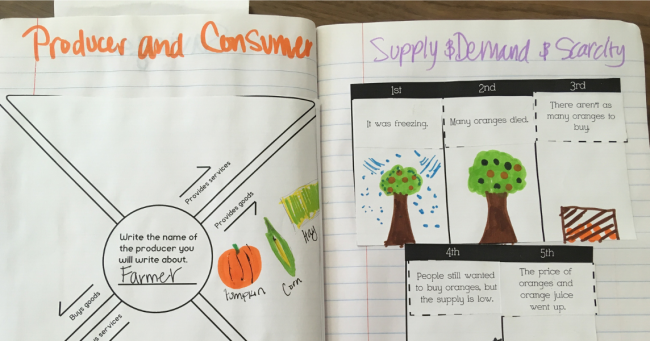 Producer and Consumer
Provides services
Provides goods
Write the name of
the producer you
will write about.
Farmer
Pumpkin
Corn
Hay
Buys goods
Buys services
Supply & Demand & Scarcity
1st
2nd
3rd
It was freezing.
Many oranges died.
There aren't as
many oranges to
buy.
4th
5th
People still wanted
to buy oranges, but
the supply is low.
The price of
oranges and
orange juice
went up.